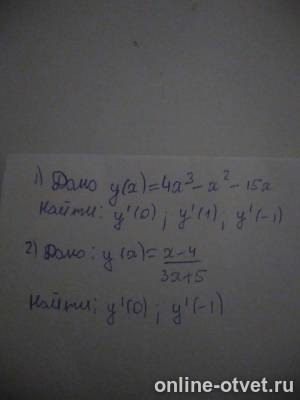 1) Дано y(x)=4x³-x²-15x
Найти: y'(0); y'(1); y'(-1)
2) Дано: y(x)=x-4
3x+5
Найти: y'(0); y'(-1)
online-otvet.ru